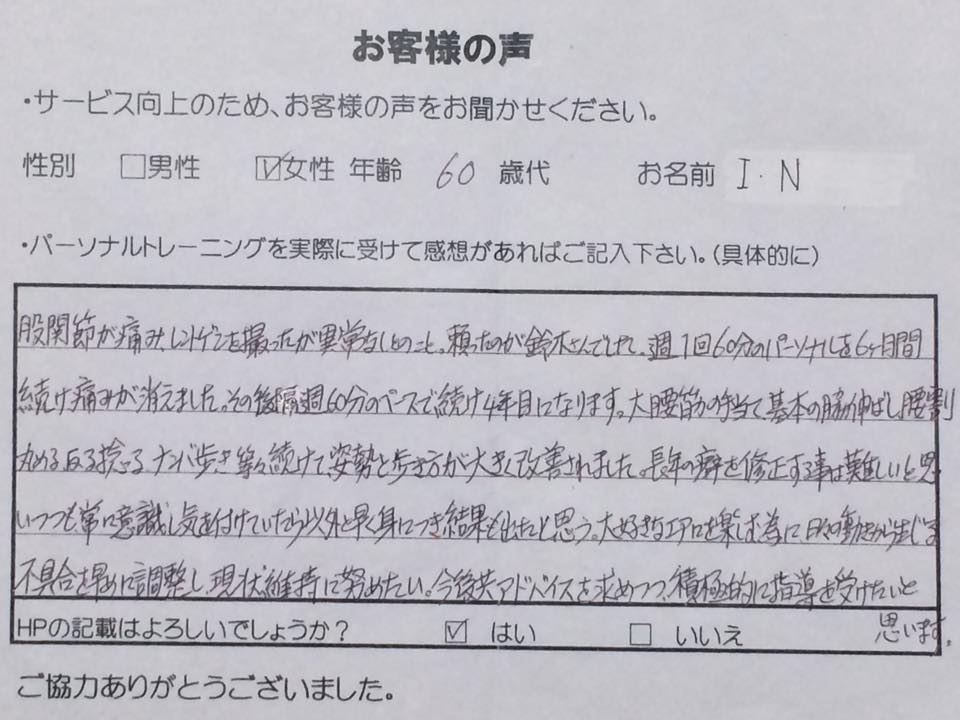 お客様の声
・サービス向上のため、お客様の声をお聞かせください。
性別 □男性 ☑女性 年齢 60 歳代 お名前 I.N
・パーソナルトレーニングを実際に受けて感想があればご記入下さい。(具体的に)
股関節が痛み、レントゲンを撮ったが異常なしとのこと。頼ったのが鈴木さんでした。週1回60分のパーソナルを6ヶ月間
続け痛みが消えました。その後隔週60分のペースで続け4年目になります。大腰筋の手当て、基本の脇伸ばし腰割
丸める反る捻る ナンバ歩き等々続けて姿勢と歩き方が大きく改善されました。長年の癖を修正する事は難しいと思
いつつも常に意識し気を付けていたら以外と早く身につき結果も出たと思う。大好きなエアロを楽しむ為に、日々の動きから生じる
不具合を早めに調整し、現状維持に努めたい。今後共アドバイスを求めつつ、積極的に指導を受けたいと
思います。
HPの記載はよろしいでしょうか? ☑ はい □ いいえ
ご協力ありがとうございました。